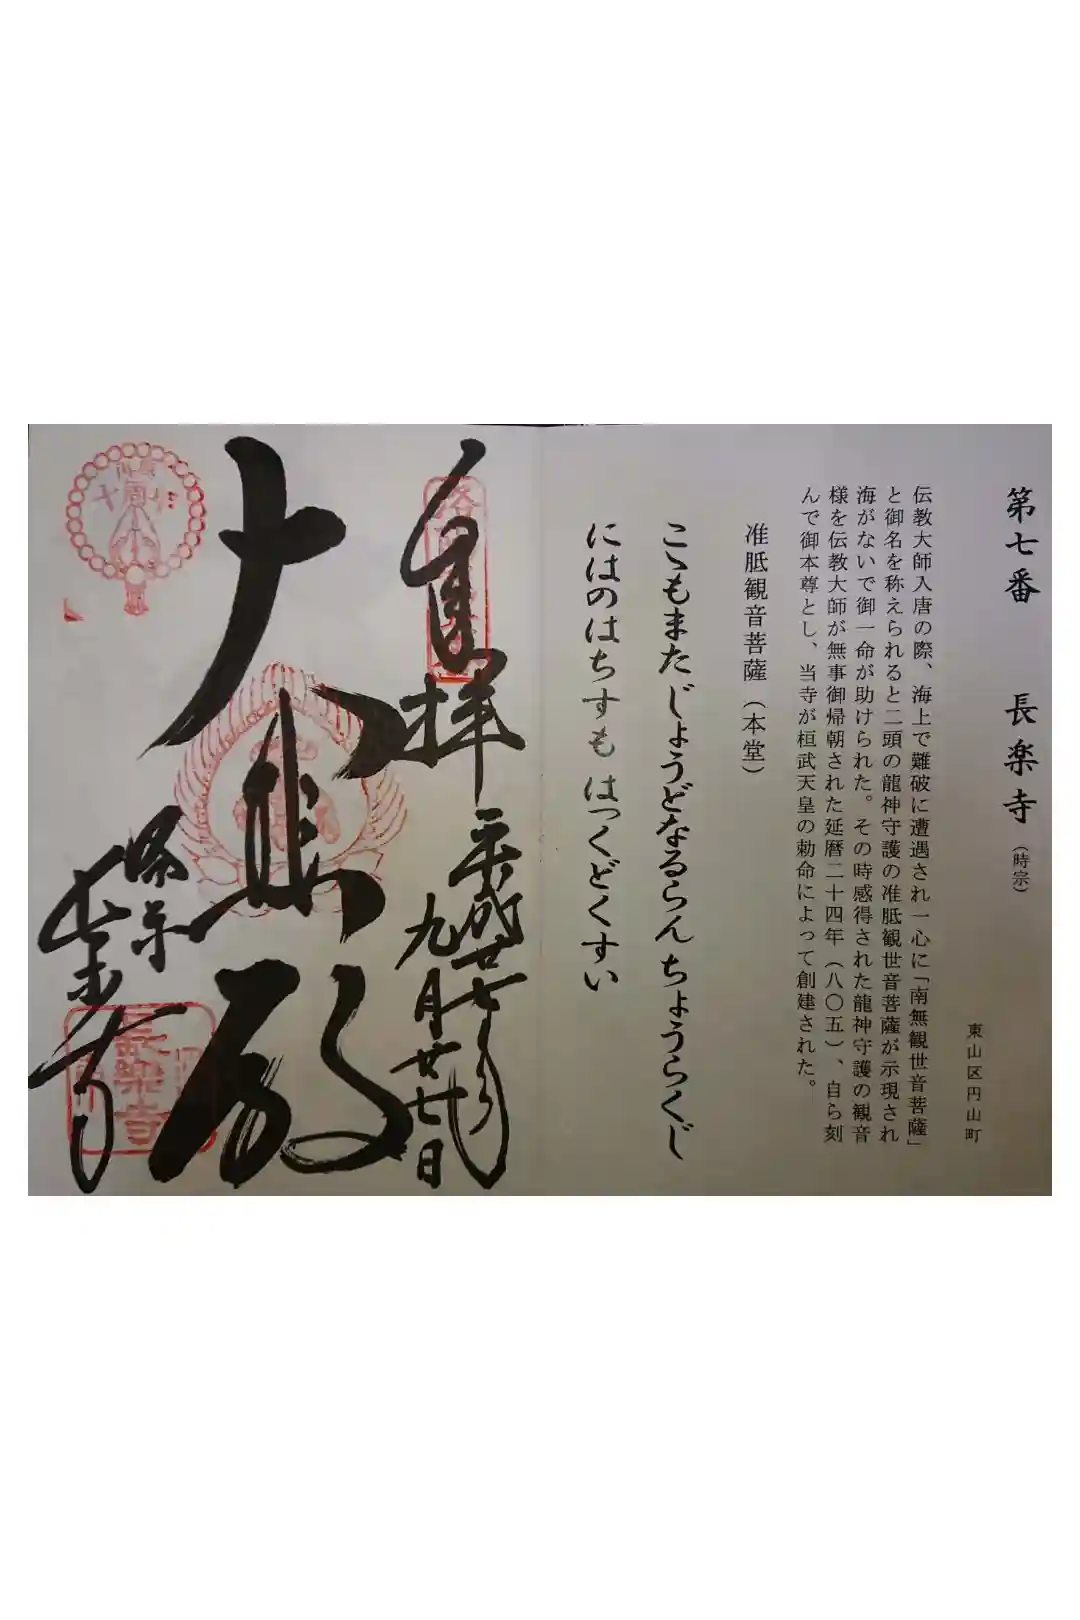 第七番　長楽寺（時宗）
東山区円山町
伝教大師入唐の際、海上で難破に遭遇され一心に「南無観世音菩薩」
と御名を称えられると二頭の龍神守護の准胝観世音菩薩が示現され
海がないで御一命が助けられた。その時感得された龍神守護の観音
様を伝教大師が無事御帰朝された延暦二十四年（八〇五）、自ら刻
んで御本尊とし、当寺が桓武天皇の勅命によって創建された。
准胝観音菩薩（本堂）
こゝもまた じょうどなるらん ちょうらくじ
にはのはちすも はっくどくすい
奉拝
平成廿七年
九月廿七日
大悲殿
長楽寺